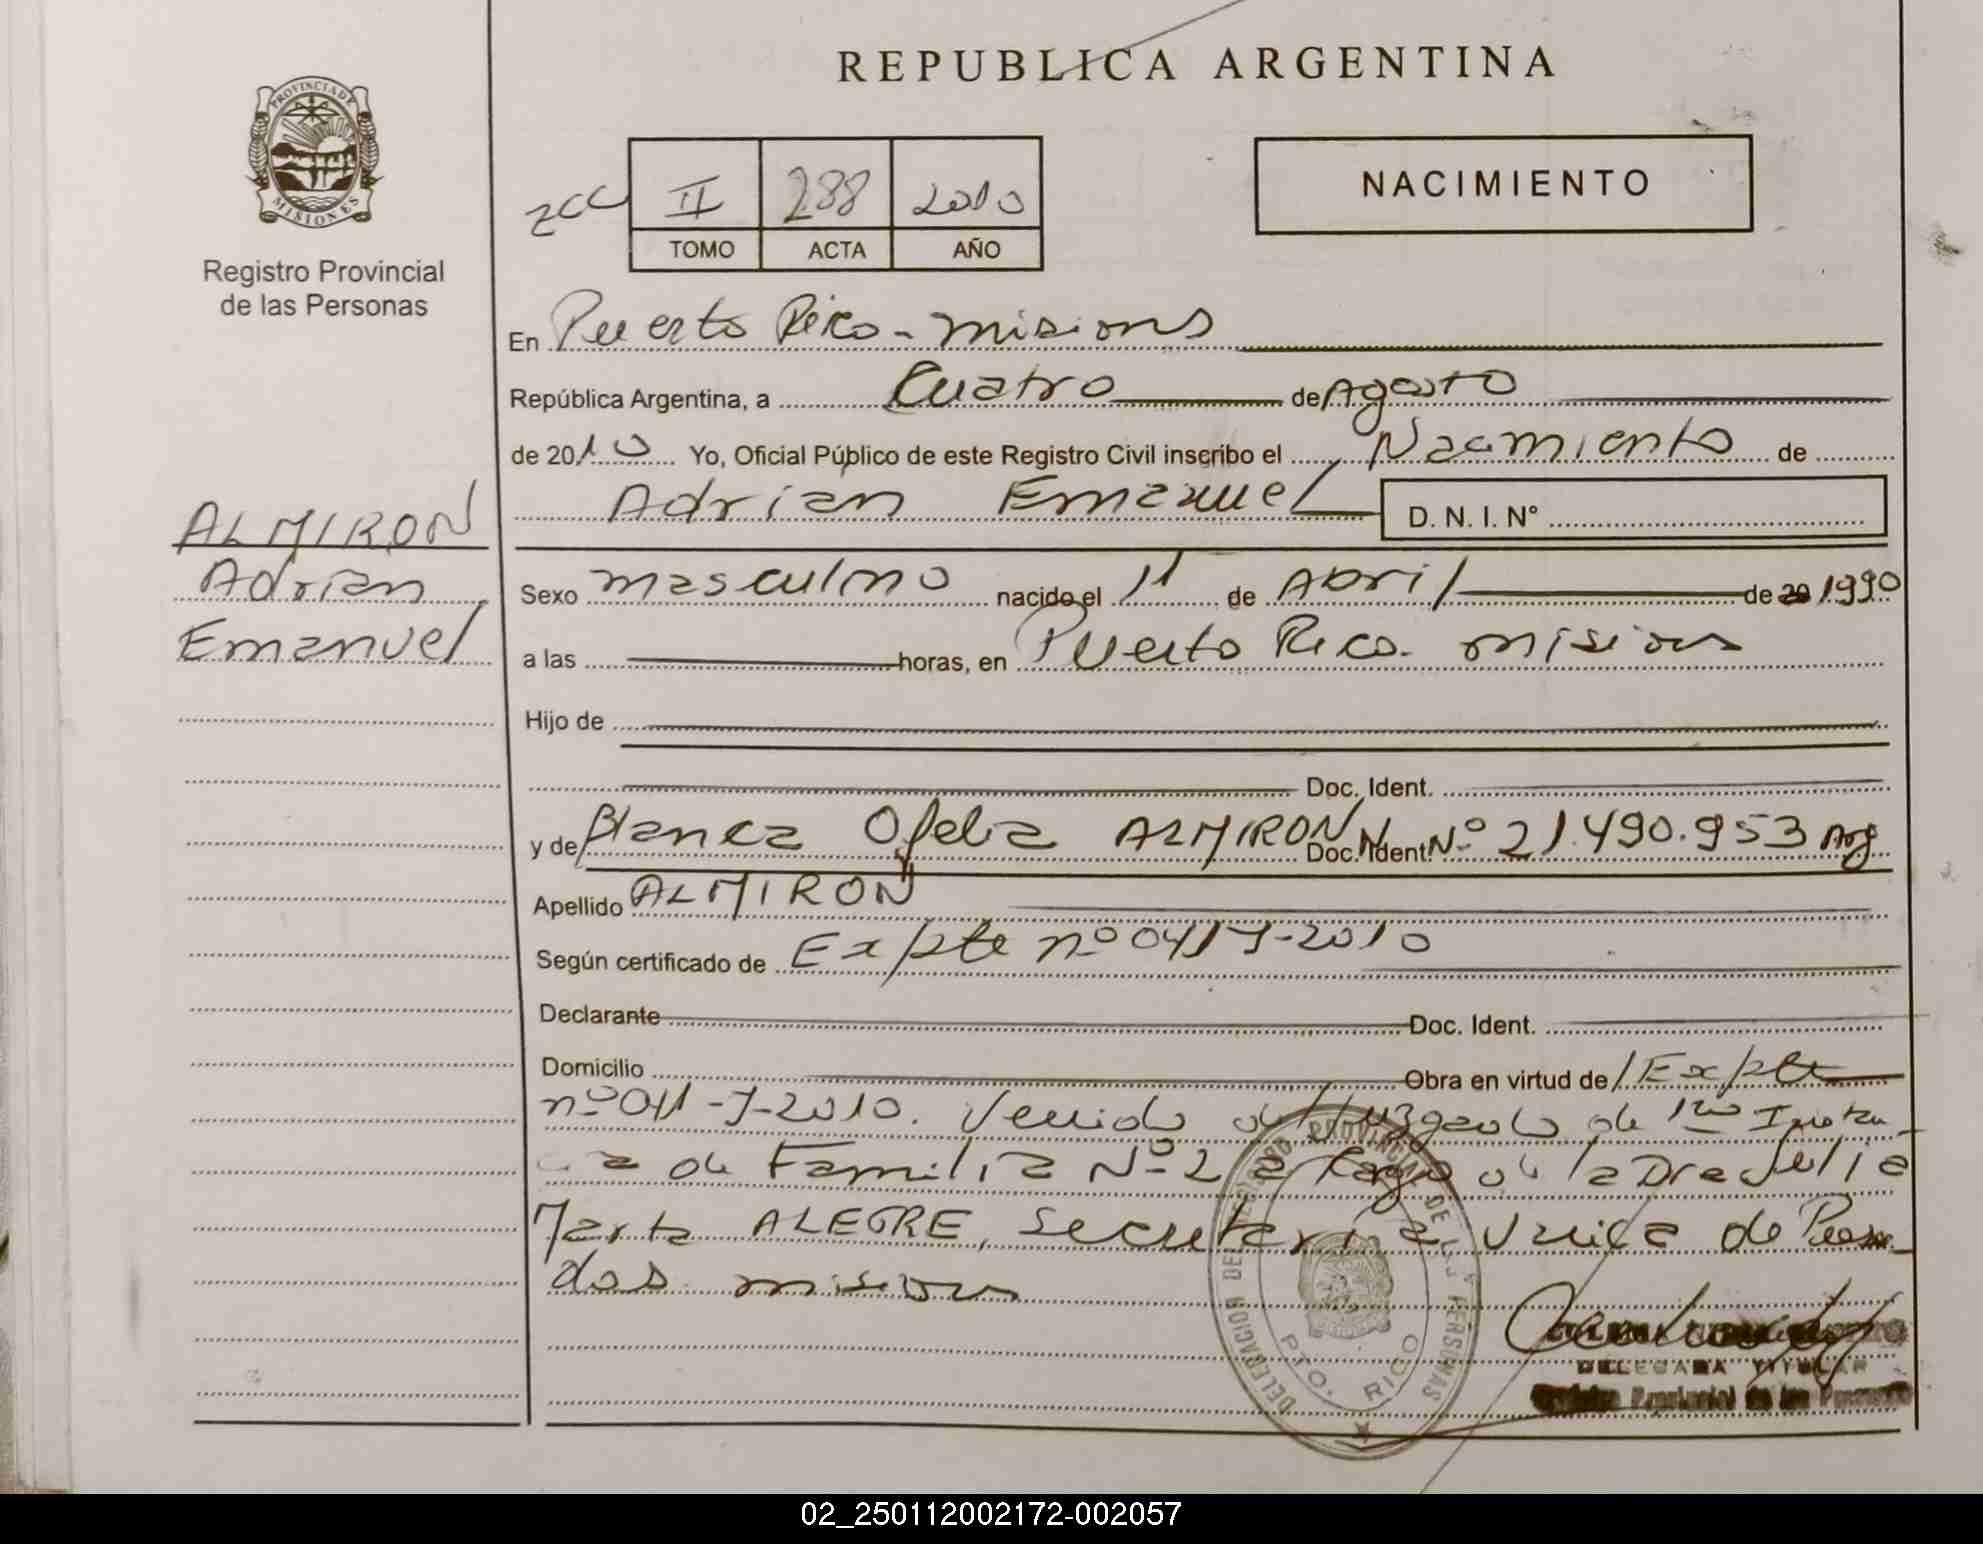 REPUBLICA ARGENTINA
PROVINCIA DE
MISIONES
Registro Provincial
de las Personas
II 288 2010
TOMO ACTA AÑO
NACIMIENTO
En Puerto Rico - misiones
República Argentina, a Cuatro de Agosto
de 2010 Yo, Oficial Público de este Registro Civil inscribo el Nacimiento de
Adrian Emanuel D. N. I. Nº
ALMIRON
Adrian
Emanuel
Sexo masculino nacido el 11 de Abril de 20 1990
a las horas, en Puerto Rico. misiones
Hijo de
Doc. Ident.
y de Blanca Ofelia ALMIRON Doc. Ident. Nº 21.490.953 Arg
Apellido ALMIRON
Según certificado de Expte nº
Declarante Doc. Ident.
Domicilio Obra en virtud de Expte
nº 2010. Venido del Juzgado de 1ra Instan
cia de Familia Nº 2 a Cargo de la Dra Julia
Marta ALEGRE, Secretaria Unica de Posa
das misiones
DELEGACION DEL REGISTRO PROVINCIAL DE LAS PERSONAS
PTO. RICO
DELEGADA TITULAR
Registro Provincial de las Personas
02_250112002172-002057